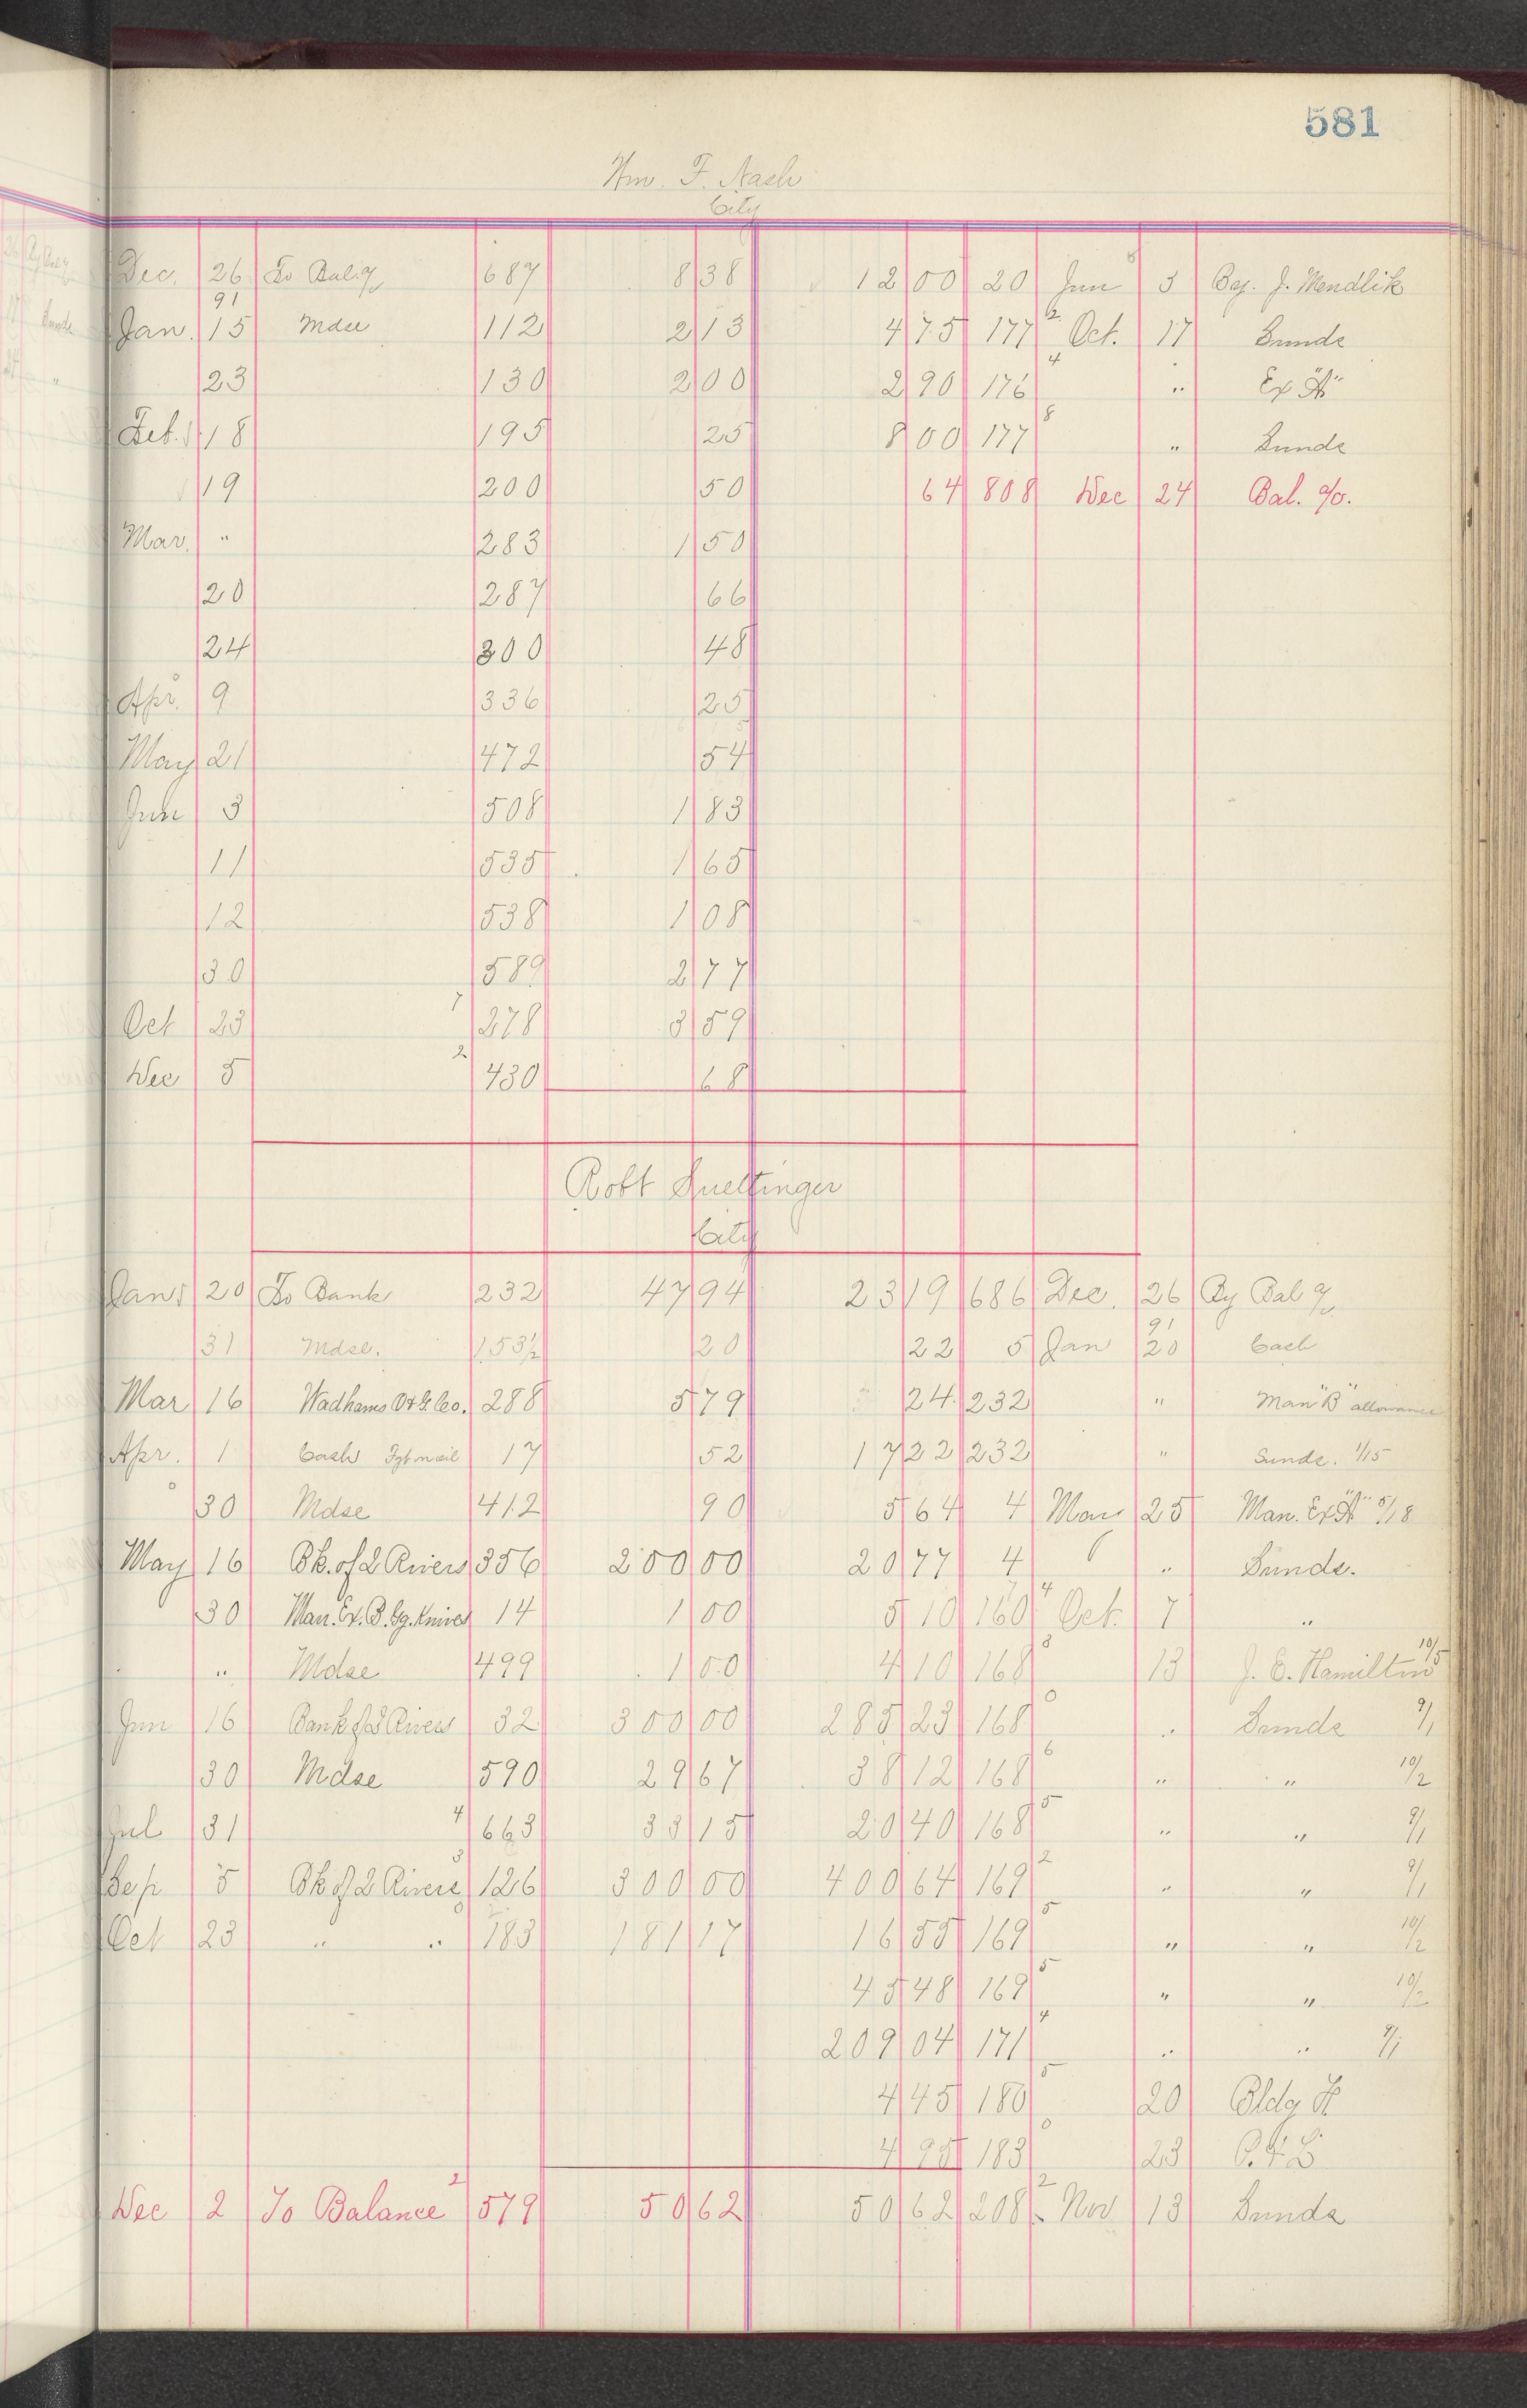 581
Wm. F. Nash
City
Dec. 26 To Bal. % 687 8 38 12 00 20 Jun 3 By J. Mendlik
91
Jan. 15 Mdse 112 2 13 4 75 177 2 Oct. 17 Sunds
23 130 2 00 2 90 176 4 " Ex "A"
Feb. 18 195 25 8 00 177 8 " Sunds
19 200 50 64 808 Dec 24 Bal. %.
Mar. " 283 1 50
20 287 66
24 300 48
Apr. 9 336 25
May 21 472 54
Jun 3 508 1 83
11 535 1 65
12 538 1 08
30 589 2 77
Oct 23 7 278 3 59
Dec 5 2 430 68
Robt Suettinger
City
Jan 20 To Bank 232 47 94 23 19 686 Dec. 26 By Bal %
91
31 Mdse. 153½ 20 22 5 Jan 20 Cash
Mar 16 Wadhams O & G. Co. 288 5 79 24 232 " Man "B" allowance
Apr. 1 Cash Fgt mail 17 52 17 22 232 " Sunds. 1/15
30 Mdse 412 90 5 64 4 Mar 25 Man. Ex "A" 5/18
May 16 Bk. of 2 Rivers 356 200 00 20 77 4 " Sunds.
30 Man. Ex. B. Gg. Knives 14 1 00 5 10 160 4 Oct. 7 "
" Mdse 499 1 00 4 10 168 3 13 J. E. Hamilton 10/5
Jun 16 Bank of 2 Rivers 32 300 00 285 23 168 0 " Sunds 9/1
30 Mdse 590 29 67 38 12 168 6 " " 10/2
Jul 31 4 663 33 15 20 40 168 5 " " 9/1
Sep 5 Bk of 2 Rivers 3 126 300 00 400 64 169 2 " " 9/1
Oct 23 " " 0 183 181 17 16 55 169 5 " " 10/2
45 48 169 5 " " 10/2
209 04 171 4 " " 9/1
4 45 180 5 20 Bldg
4 95 183 0 23
Dec 2 To Balance 2 579 50 62 50 62 208 2 Nov 13 Sunds